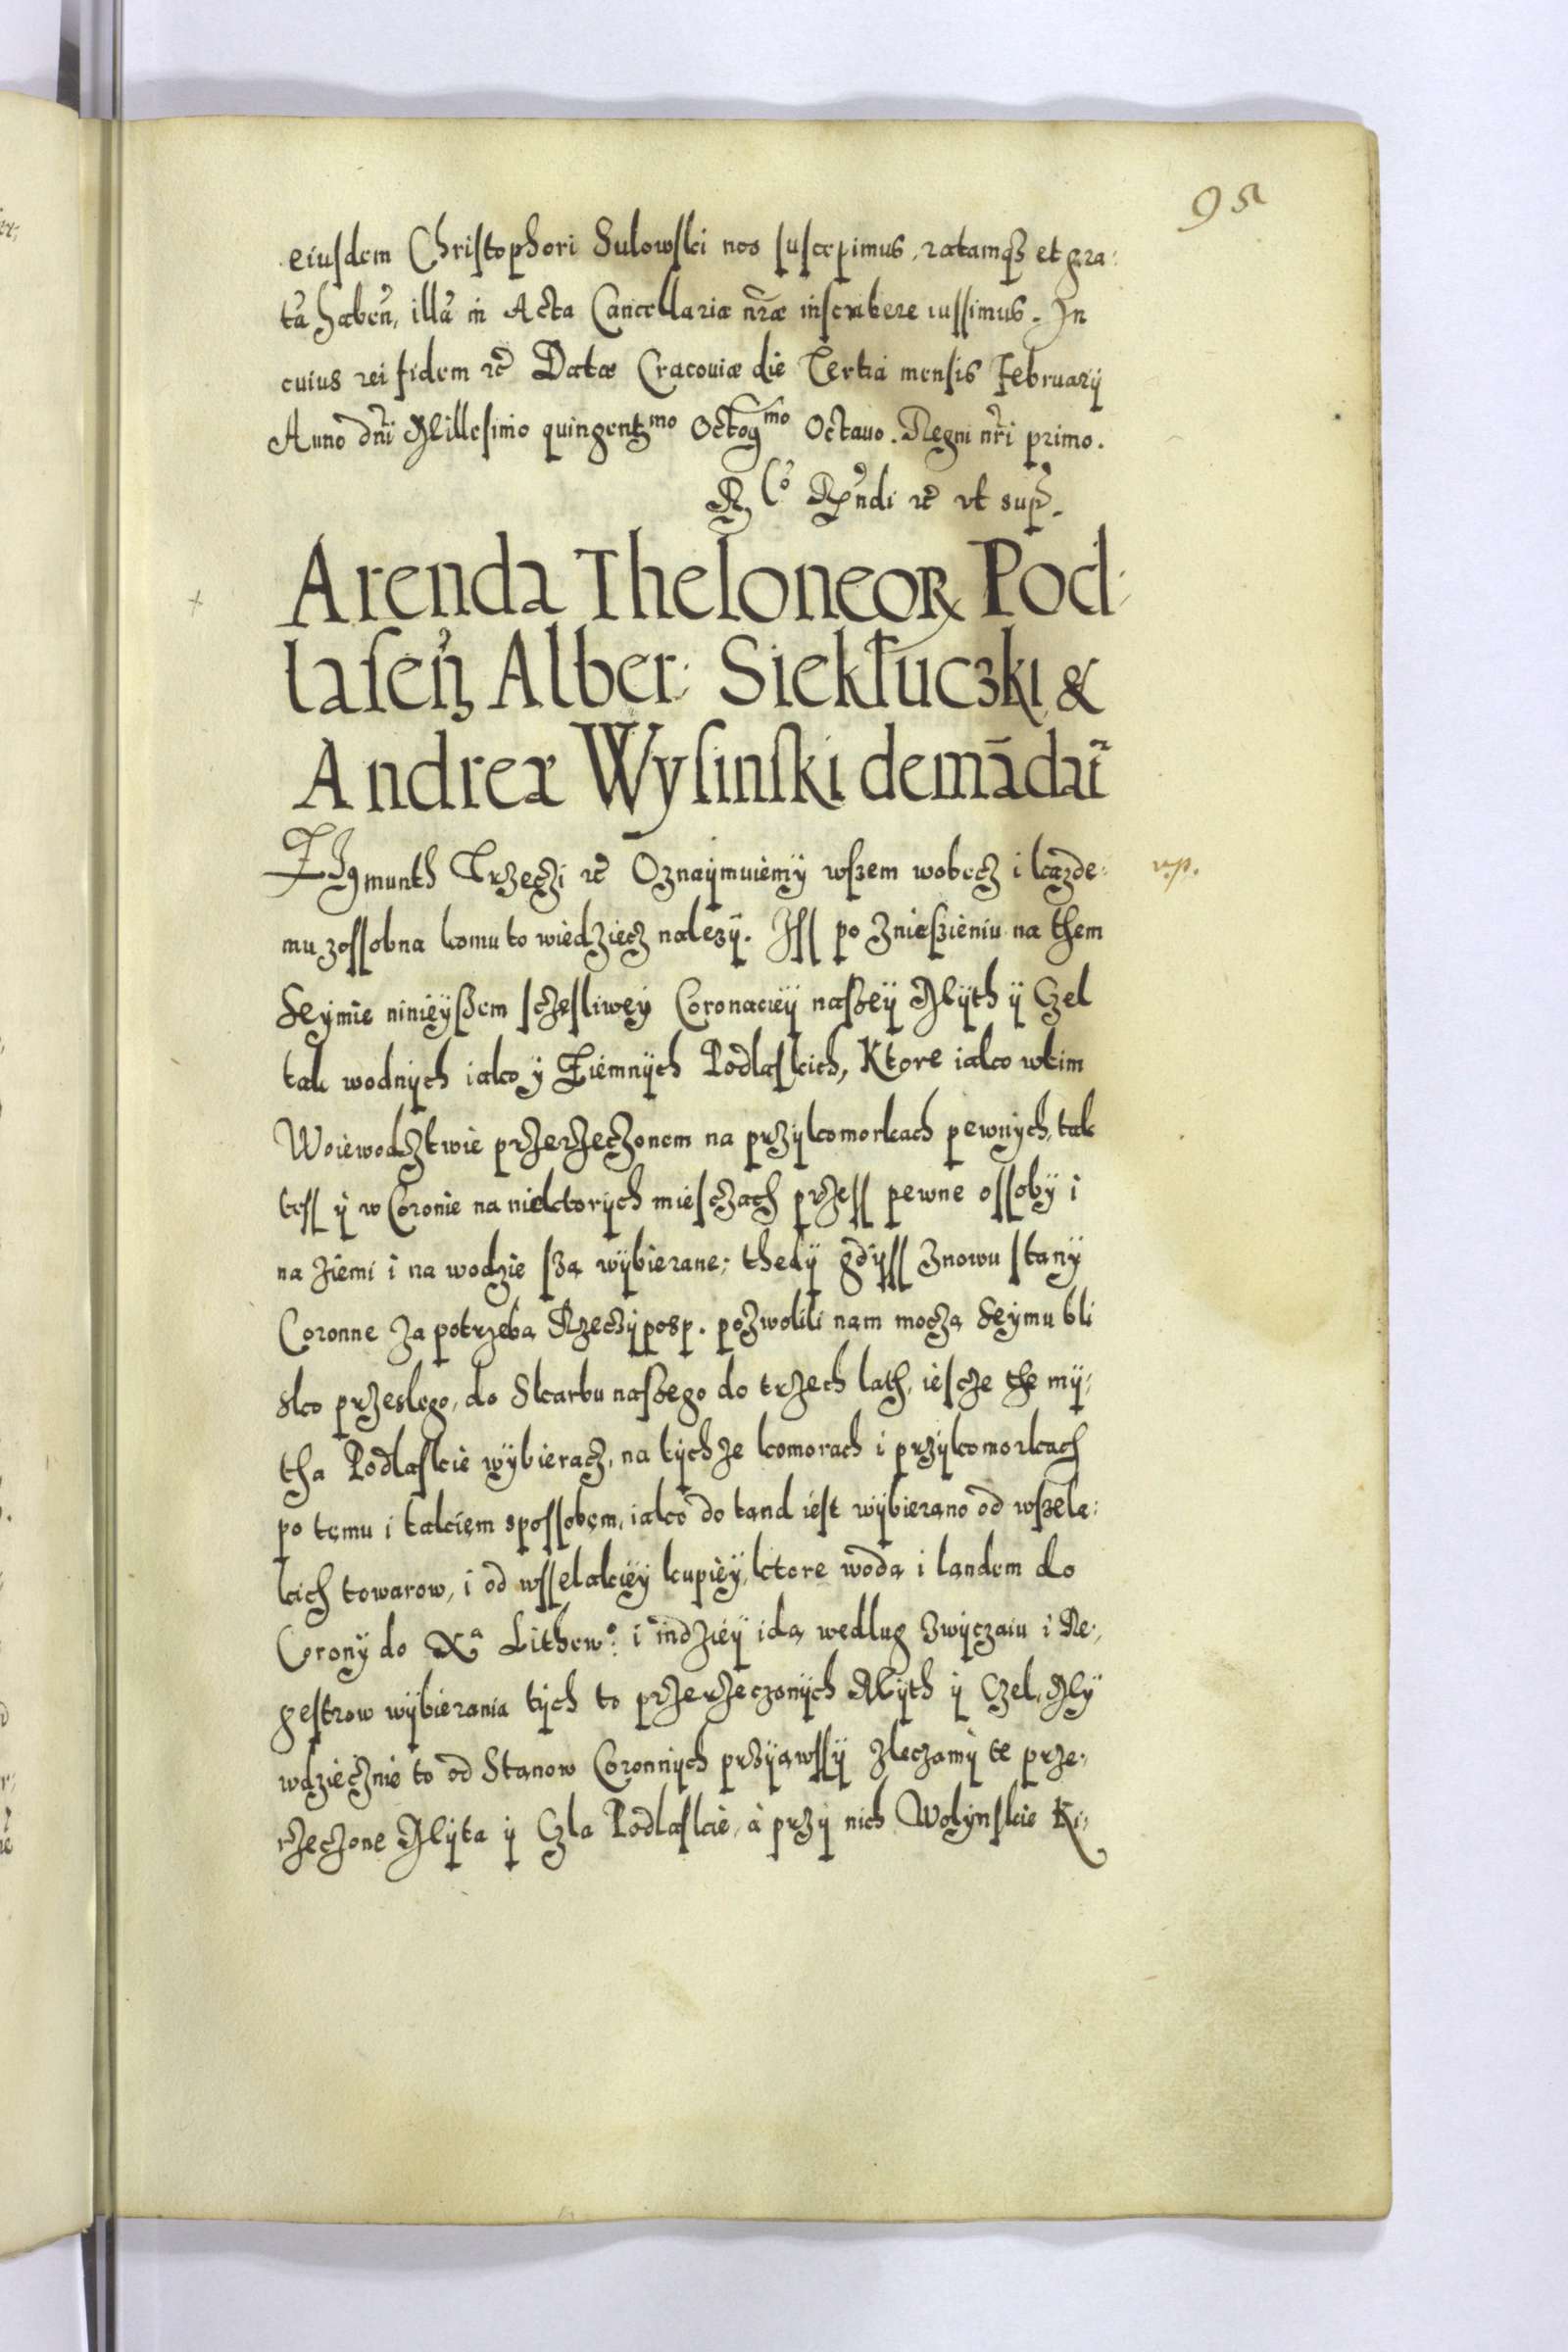 95
eiusdem Christophori Sulowski nos suscepimus, ratamqꝫ et gra:
tã haben̄, illã in Acta Cancellariæ nr̃æ inscribere iussimus. In
cuius rei fidem ꝛc̃ Datæ Cracouiæ die Tertia mensis February
Anno dn̄i Millesimo quingentᵐᵒ Octogᵐᵒ Octauo. Regni nr̃i primo.
ꝛc̃ vt sup̃.
Arenda Theloneoꝝ Pod:
lasen̄ Alber: Siekłuczki &
Andreæ Wysinski demādat̃
ZIgmunth Trzeczi ꝛc̃ Oznaÿmuiemÿ wszem wobecz i kazde:
v.p.
mu zossobna komu to wiedziecz nalezÿ. Iss po znieszieniu na them
Seÿmie ninieÿszem sczesliweÿ Coronacieÿ naszeÿ Mÿth ÿ Czel
tak wodnÿch iako ÿ Ziemnÿch Podlaskich, Ktore iako wtim
Woiewodcztwie przerzeczonem na przÿkomorkach pewnÿch, tak
tess ÿ w Coronie na niektorÿch miesczach przess pewne ossobÿ i
na ziemi i na wodzie szą wÿbierane; thedÿ gdÿss znowu stanÿ
Coronne za potrzebą Rzeczÿposp. pozwolili nam moczą Seÿmu bli
sko przeslego, do Skarbu naszego do trzech lath, iescze the mÿ:
tha Podlaskie wÿbieracz, na tÿchze komorach i przÿkomorkach
po temu i takiem spossobem, iako do tand iest wÿbierano od wszela:
kich towarow, i od wsselakieÿ kupieÿ, ktore wodą i landem do
Coronÿ do Xᵃ Lithewᵒ: i indzieÿ idą wedlug zwÿczaiu i Re:
gestrow wÿbierania tÿch to przerzeczonÿch Mÿth ÿ Czel, Mÿ
wdziecznie to od Stanow Coronnÿch przÿiąwssÿ zleczamÿ te prze:
rzeczone Mÿta ÿ Czla Podlaskie, à przÿ nich Wolÿnskie Ki: